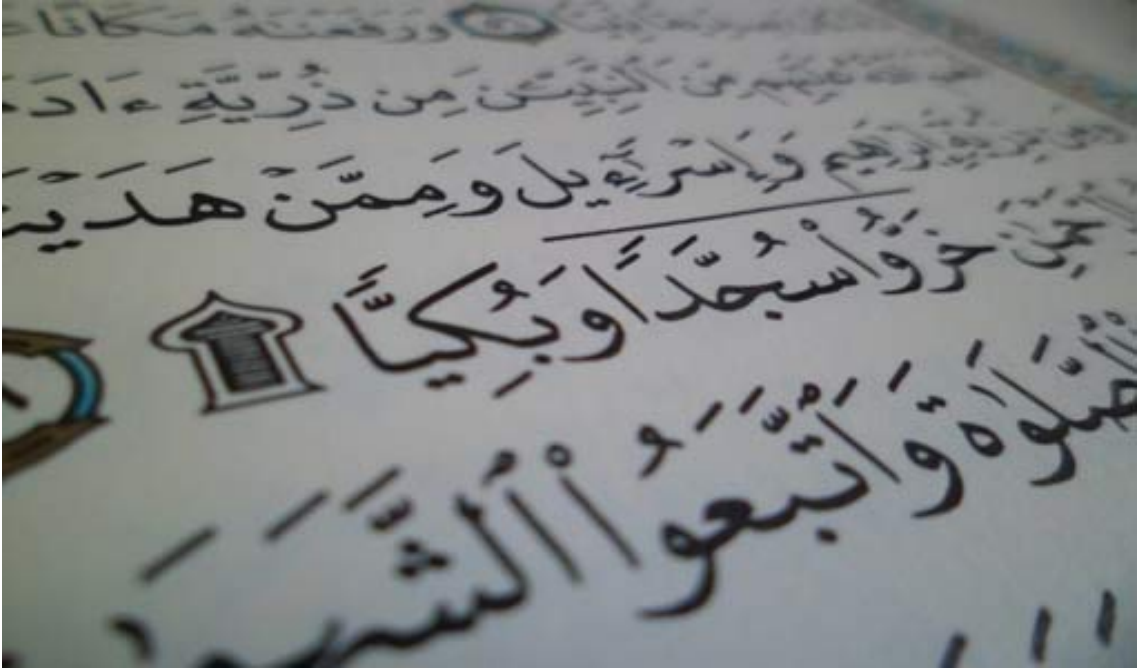 وَرَفَعْنَٰهُ مَكَانًا
عَلَيْهِم مِّنَ ٱلنَّبِيِّـۧنَ مِن ذُرِّيَّةِ ءَادَ
ذُرِّيَّةِ إِبْرَٰهِيمَ وَإِسْرَٰٓءِيلَ وَمِمَّنْ هَدَيْنَ
خَرُّوا۟ سُجَّدًا وَبُكِيًّا ۩
ٱلصَّلَوٰةَ وَٱتَّبَعُوا۟ ٱلشَّهَ